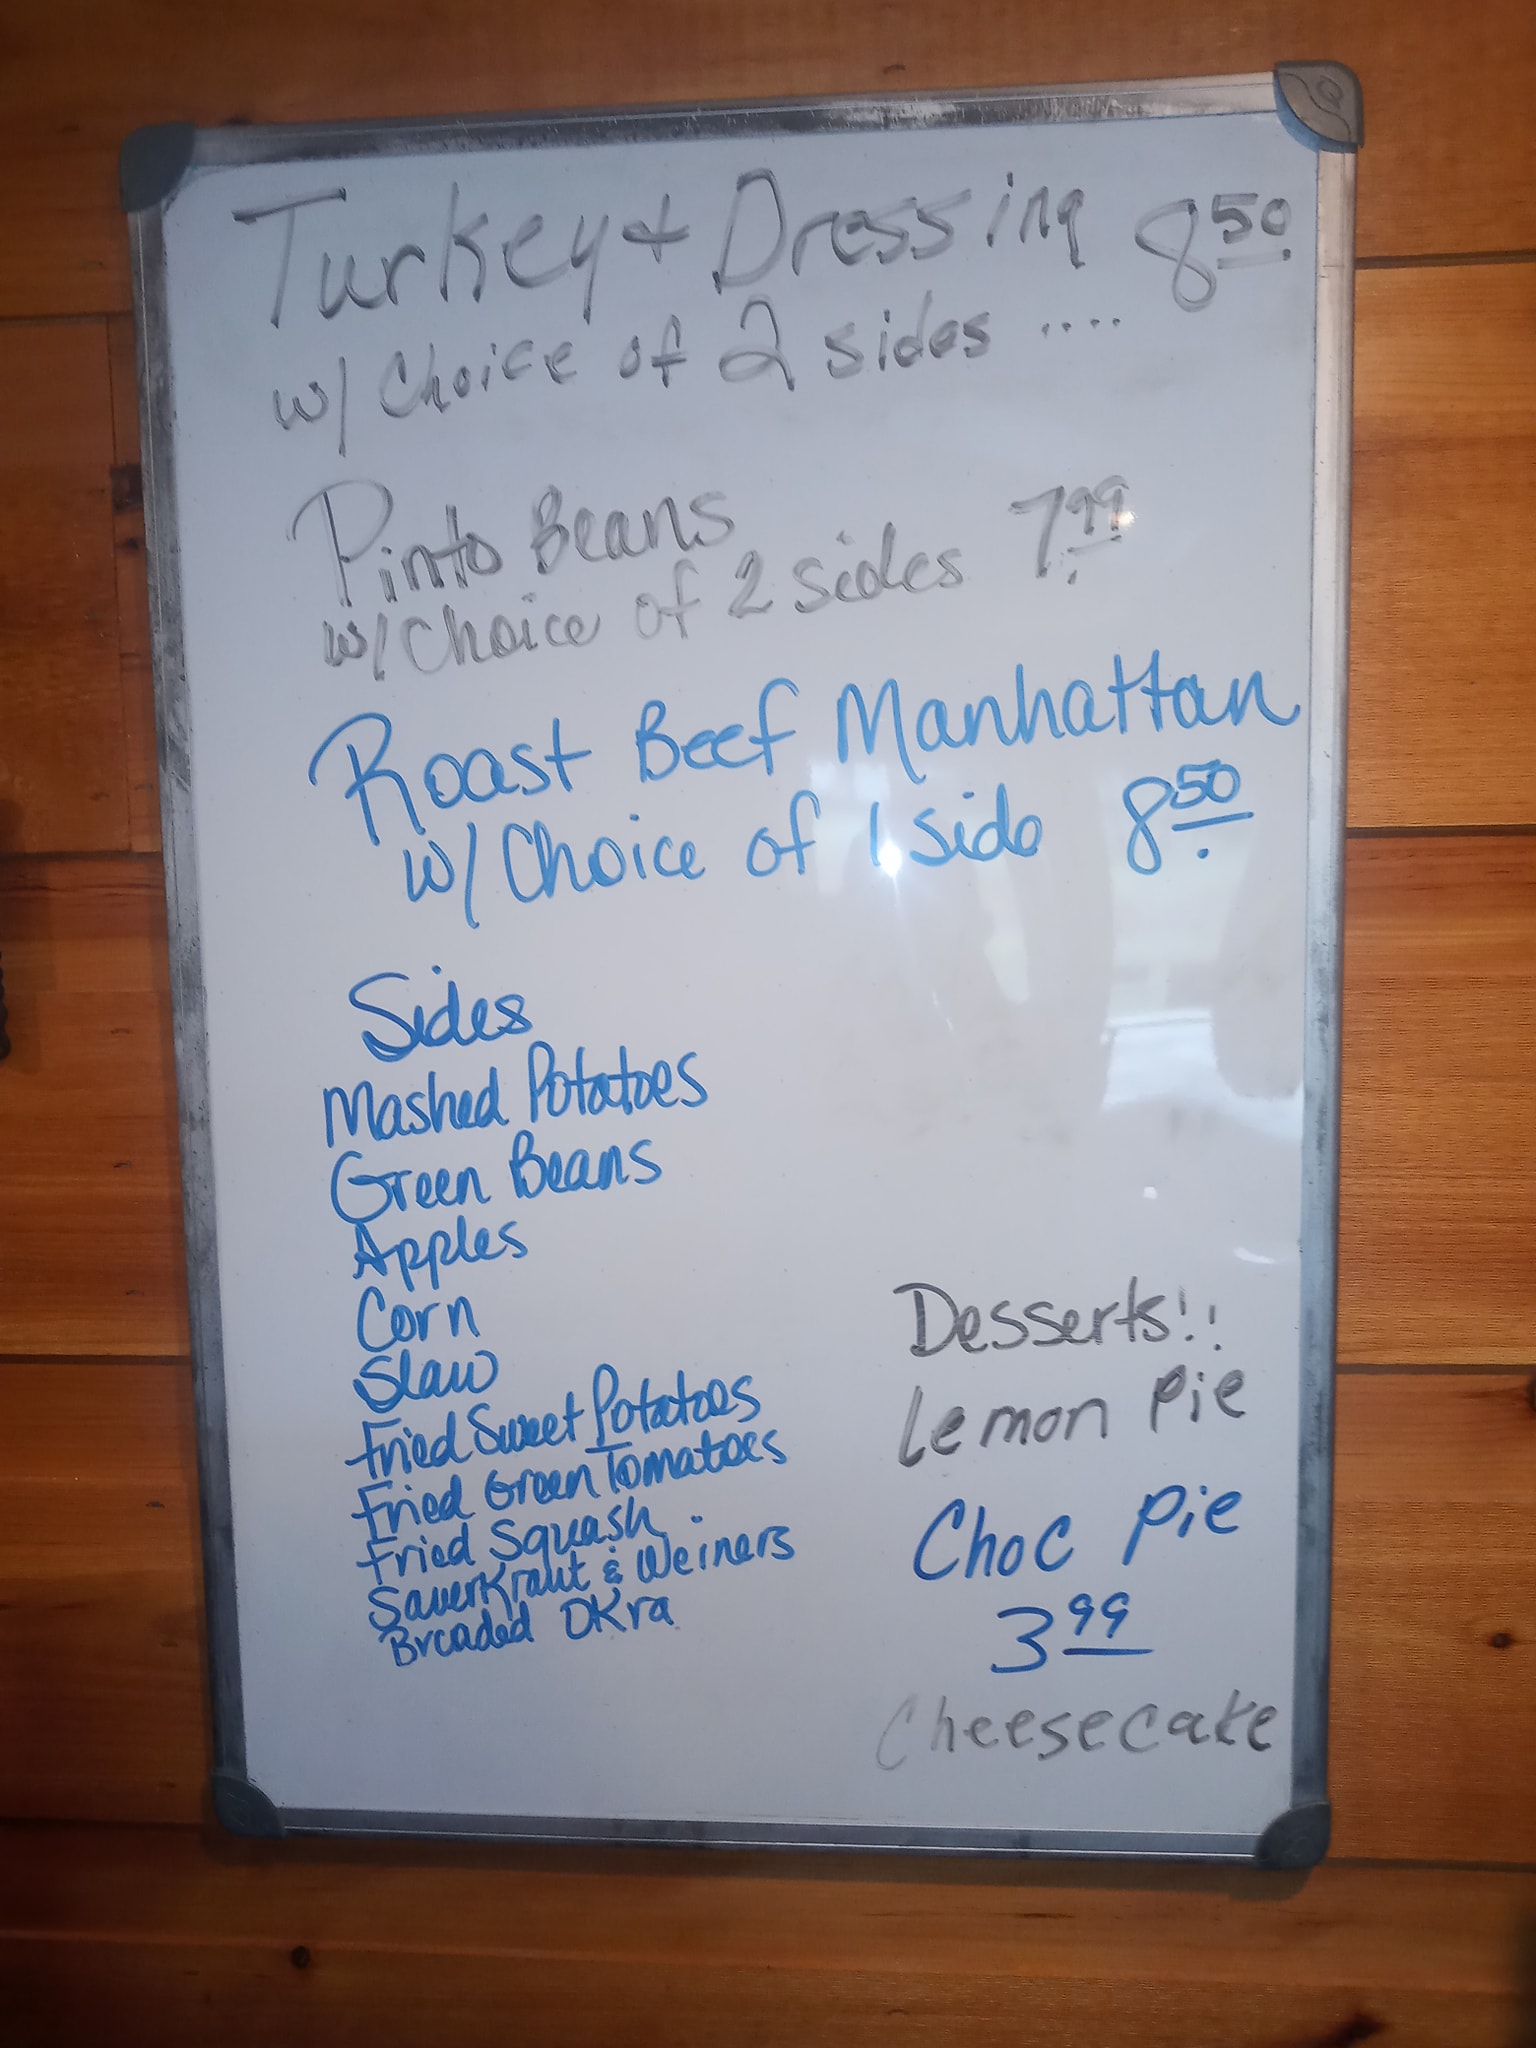 Turkey + Dressing 8 50
w/ Choice of 2 sides ....
Pinto Beans
w/ Choice of 2 sides 7.99
Roast Beef Manhattan
w/ Choice of 1 side 8.50
Sides
Mashed Potatoes
Green Beans
Apples
Corn
Slaw
Fried Sweet Potatoes
Fried Green Tomatoes
Fried Squash.
Sauerkraut & Weiners
Breaded OKra
Desserts!!
Lemon Pie
Choc Pie
3 99
Cheesecake